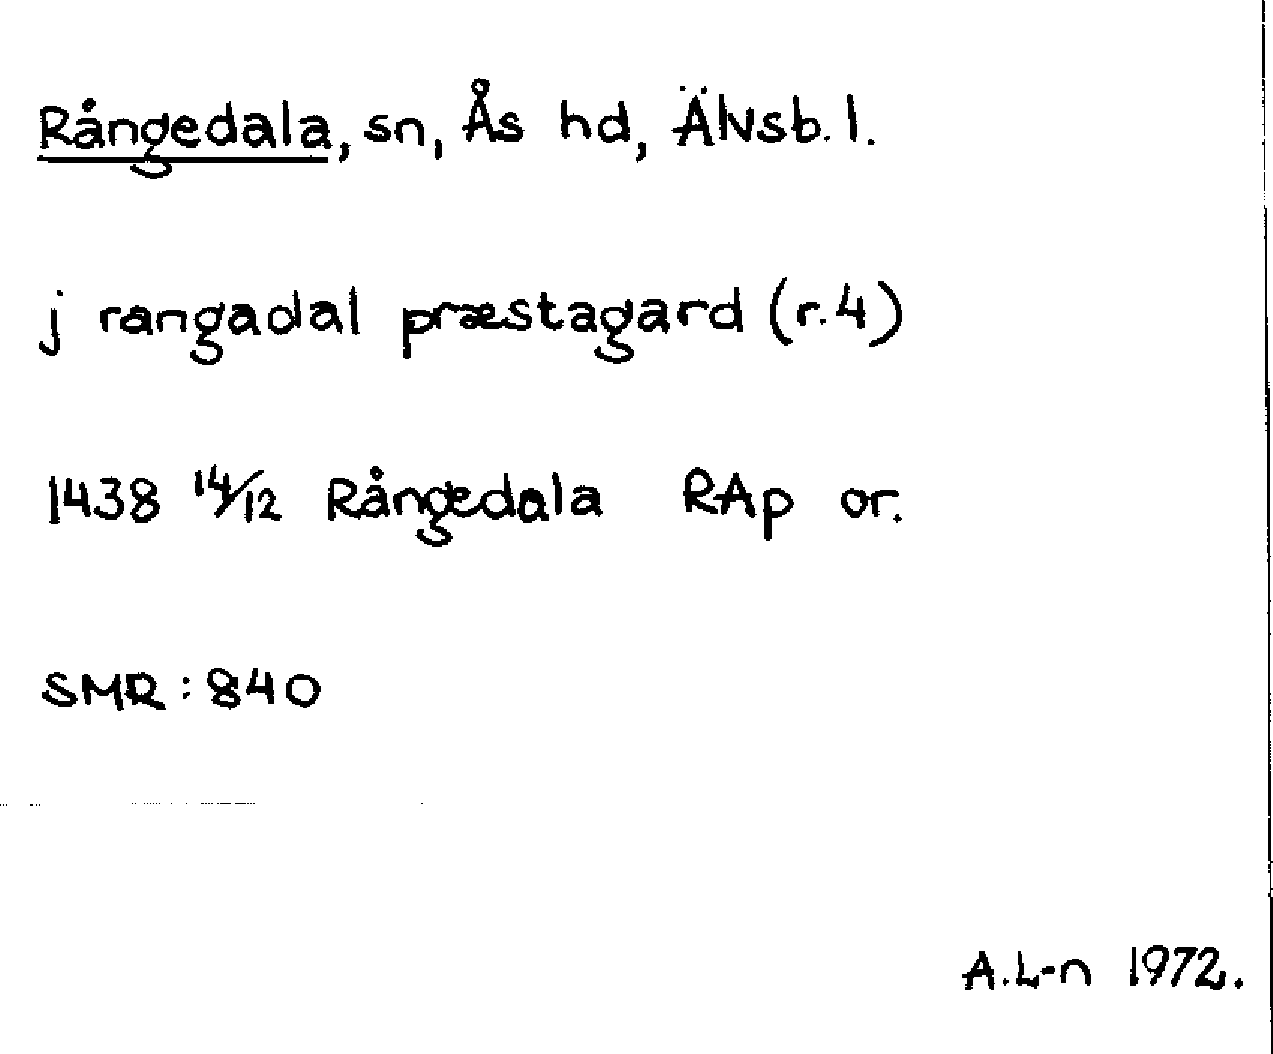 Rångedala, sn, Ås hd, Älvsb. l.
j rangadal præstagard (r. 4)
1438 14/12 Rångedala RAp or.
SMR: 840
A.L-n 1972.